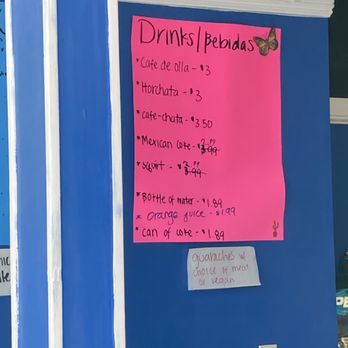 Drinks/Bebidas
* Cafe de olla - $3
* Horchata - $3
* cafe-chata - $3.50
* Mexican Coke - $
* Squirt - $
* Bottle of water - $1.89
* orange juice - $1.99
* can of coke - $1.89
guaraches w/
choice of meat
or vegan